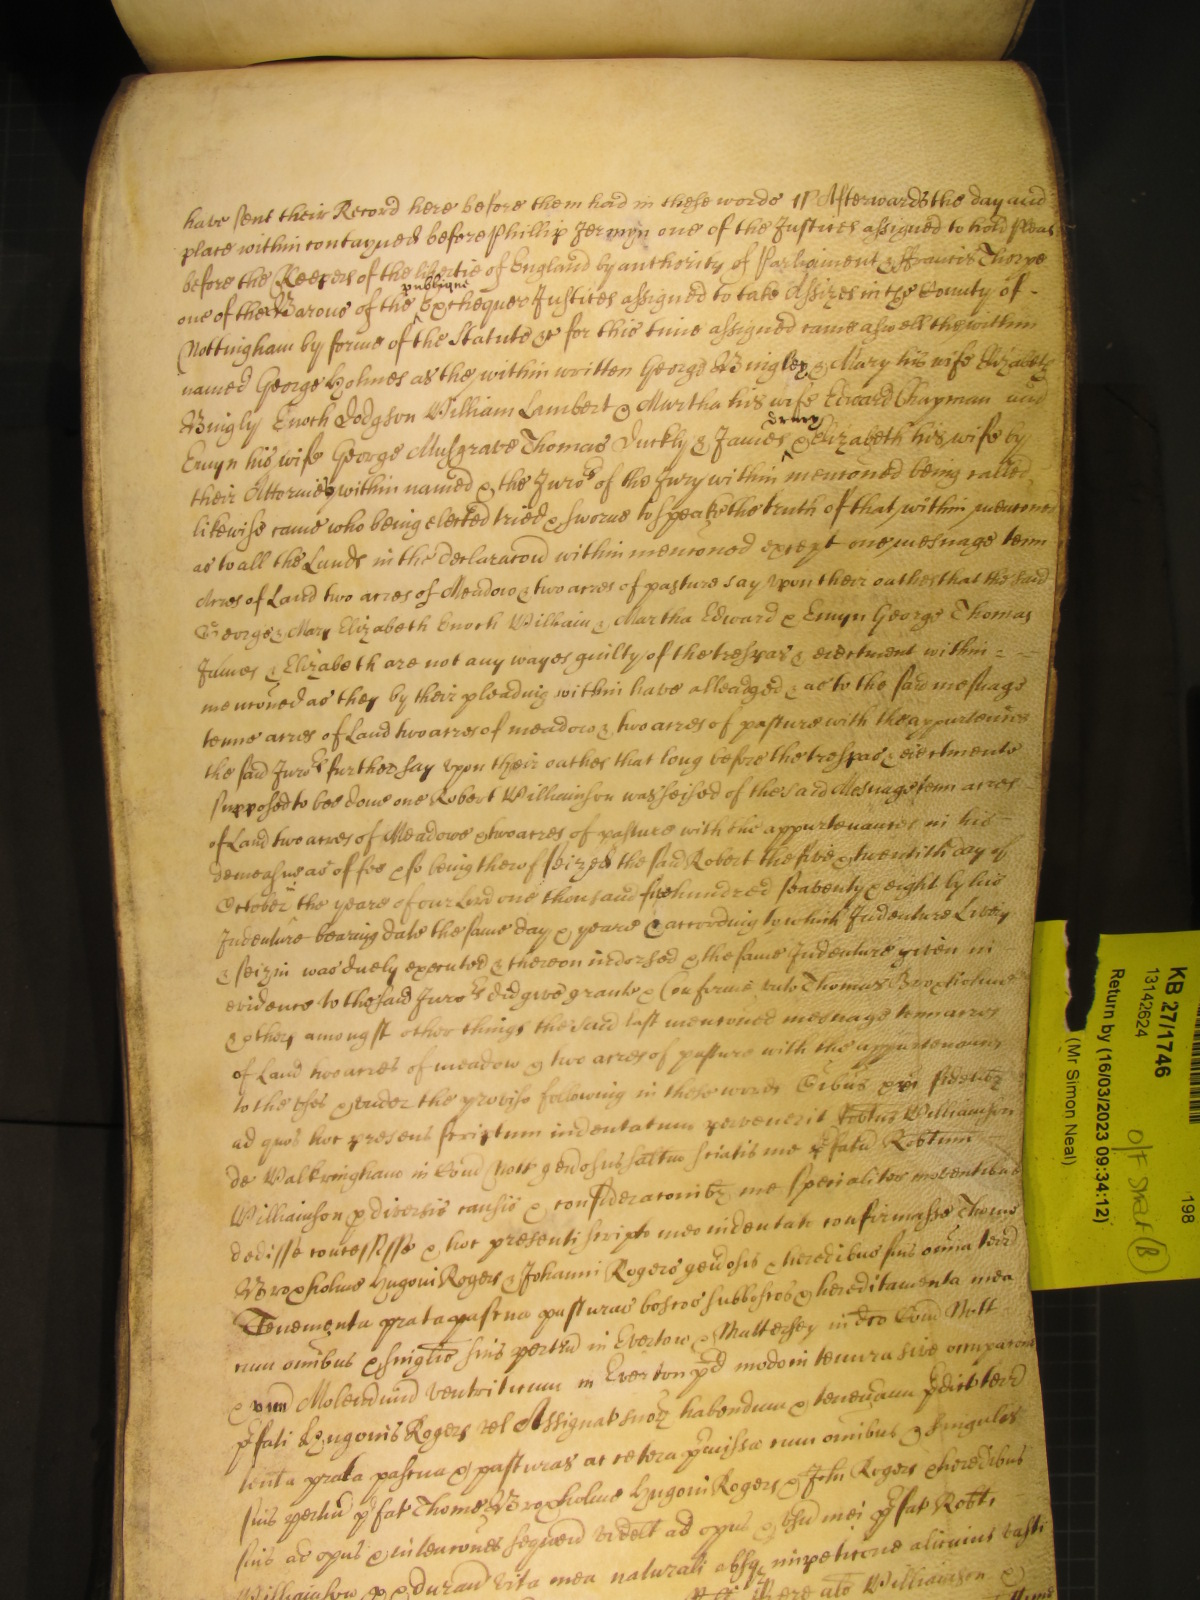 have sent their Record here before them had in these words Afterwards the day and
place within contayned before Phillip Jermyn one of the Justices assigned to hold pleas
before the Keepers of the libertie of England by authority of Parliament & Francis Thorpe
one of the Barons of the publique Exchequer Justices assigned to take Assizes in the County of
Nottingham by forme of the Statute &c for this time assigned came aswell the within
named George Holmes as the within written George Bingley & Mary his wife Elizabeth
Bingly Enoch Dodgson William Lambert & Martha his wife Edward Chapman and
Emyn his wife George Musgrave Thomas Duckly & James & Elizabeth his wife by
their Attornies within named & the Juro's of the Jury within mencioned being called
likewise came who being elected tried & sworne to speake the truth of that within mencioned
as to all the Lands in the declaracon within mencioned except one mesuage tenn
Acres of Land two acres of Meadow & two acres of pasture say upon their oathes that the said
George & Mary Elizabeth Enoch William & Martha Edward & Emyn George Thomas
James & Elizabeth are not any wayes guilty of the trespas & eiectment within
mencioned as they by their pleading within have alleadged & as to the said mesuage
tenne acres of Land two acres of meadow & two acres of pasture with the appurtenncs
the said Juro's further say upon their oathes that long before the trespas & eiectmente
supposed to bee done one Robert Williamson was seised of the said Mesuage tenn acres
of Land two acres of Meadowe & two acres of pasture with the appurtenances in his
demeasne as of fee & so being therof seized the said Robert the five & twentith day of
October the yeare of our Lord one thousand five hundred seaventy & eight by his
Indenture bearing date the same day & yeare & according to which Indenture Livery
& seizin was duely executed & thereon indorsed & the same Indenture given in
evidence to the said Juro's did give graunt & Confirme unto Thomas Broxholme
& others amongst other things the said last mencioned mesuage tenn acres
of Land two acres of meadow & two acres of pasture with the appurtenances
to the uses & under the proviso following in these words Oibus xpi fidelibz
ad quos hoc presens scriptum indentatum pervenerit Robtus Williamson
de Walkringham in Com Nott generosus saltm sciatis me pfatu Robtum
Williamson p diversis causis & consideraconibz me specialiter moventibus
dedisse concessisse & hoc presenti scripto meo indentat confirmasse Thome
Broxholme Hugoni Rogers & Johanni Rogers genosis & heredibus suis omnia terr
Tenementa prata pascua pasturas boscos subboscos & hereditamenta mea
cum omibus & singlis suis pertin in Everton & Mattersey in dco Com Nott
& unu Molendinu ventriticum in Everton pd modo in tenura sive occupacone
pfati Hugonis Rogers vel Assignat suoz habendum & tenendum pdict terr
tenta prata pascua & pasturas ac cetera pmissa cum omibus & singulis
suis pertin pfat Thome Broxholme Hugoni Rogers & John Rogers & heredibus
suis ad opus & intencones sequen videlt ad opus & usu mei pfat Robti
Williamson p & duran vita mea naturali absqz impeticone alicuius vasti
Williamson &
KB 27/1746
13142624
Return by (16/03/2023 09:34:12)
(Mr Simon Neal)
198